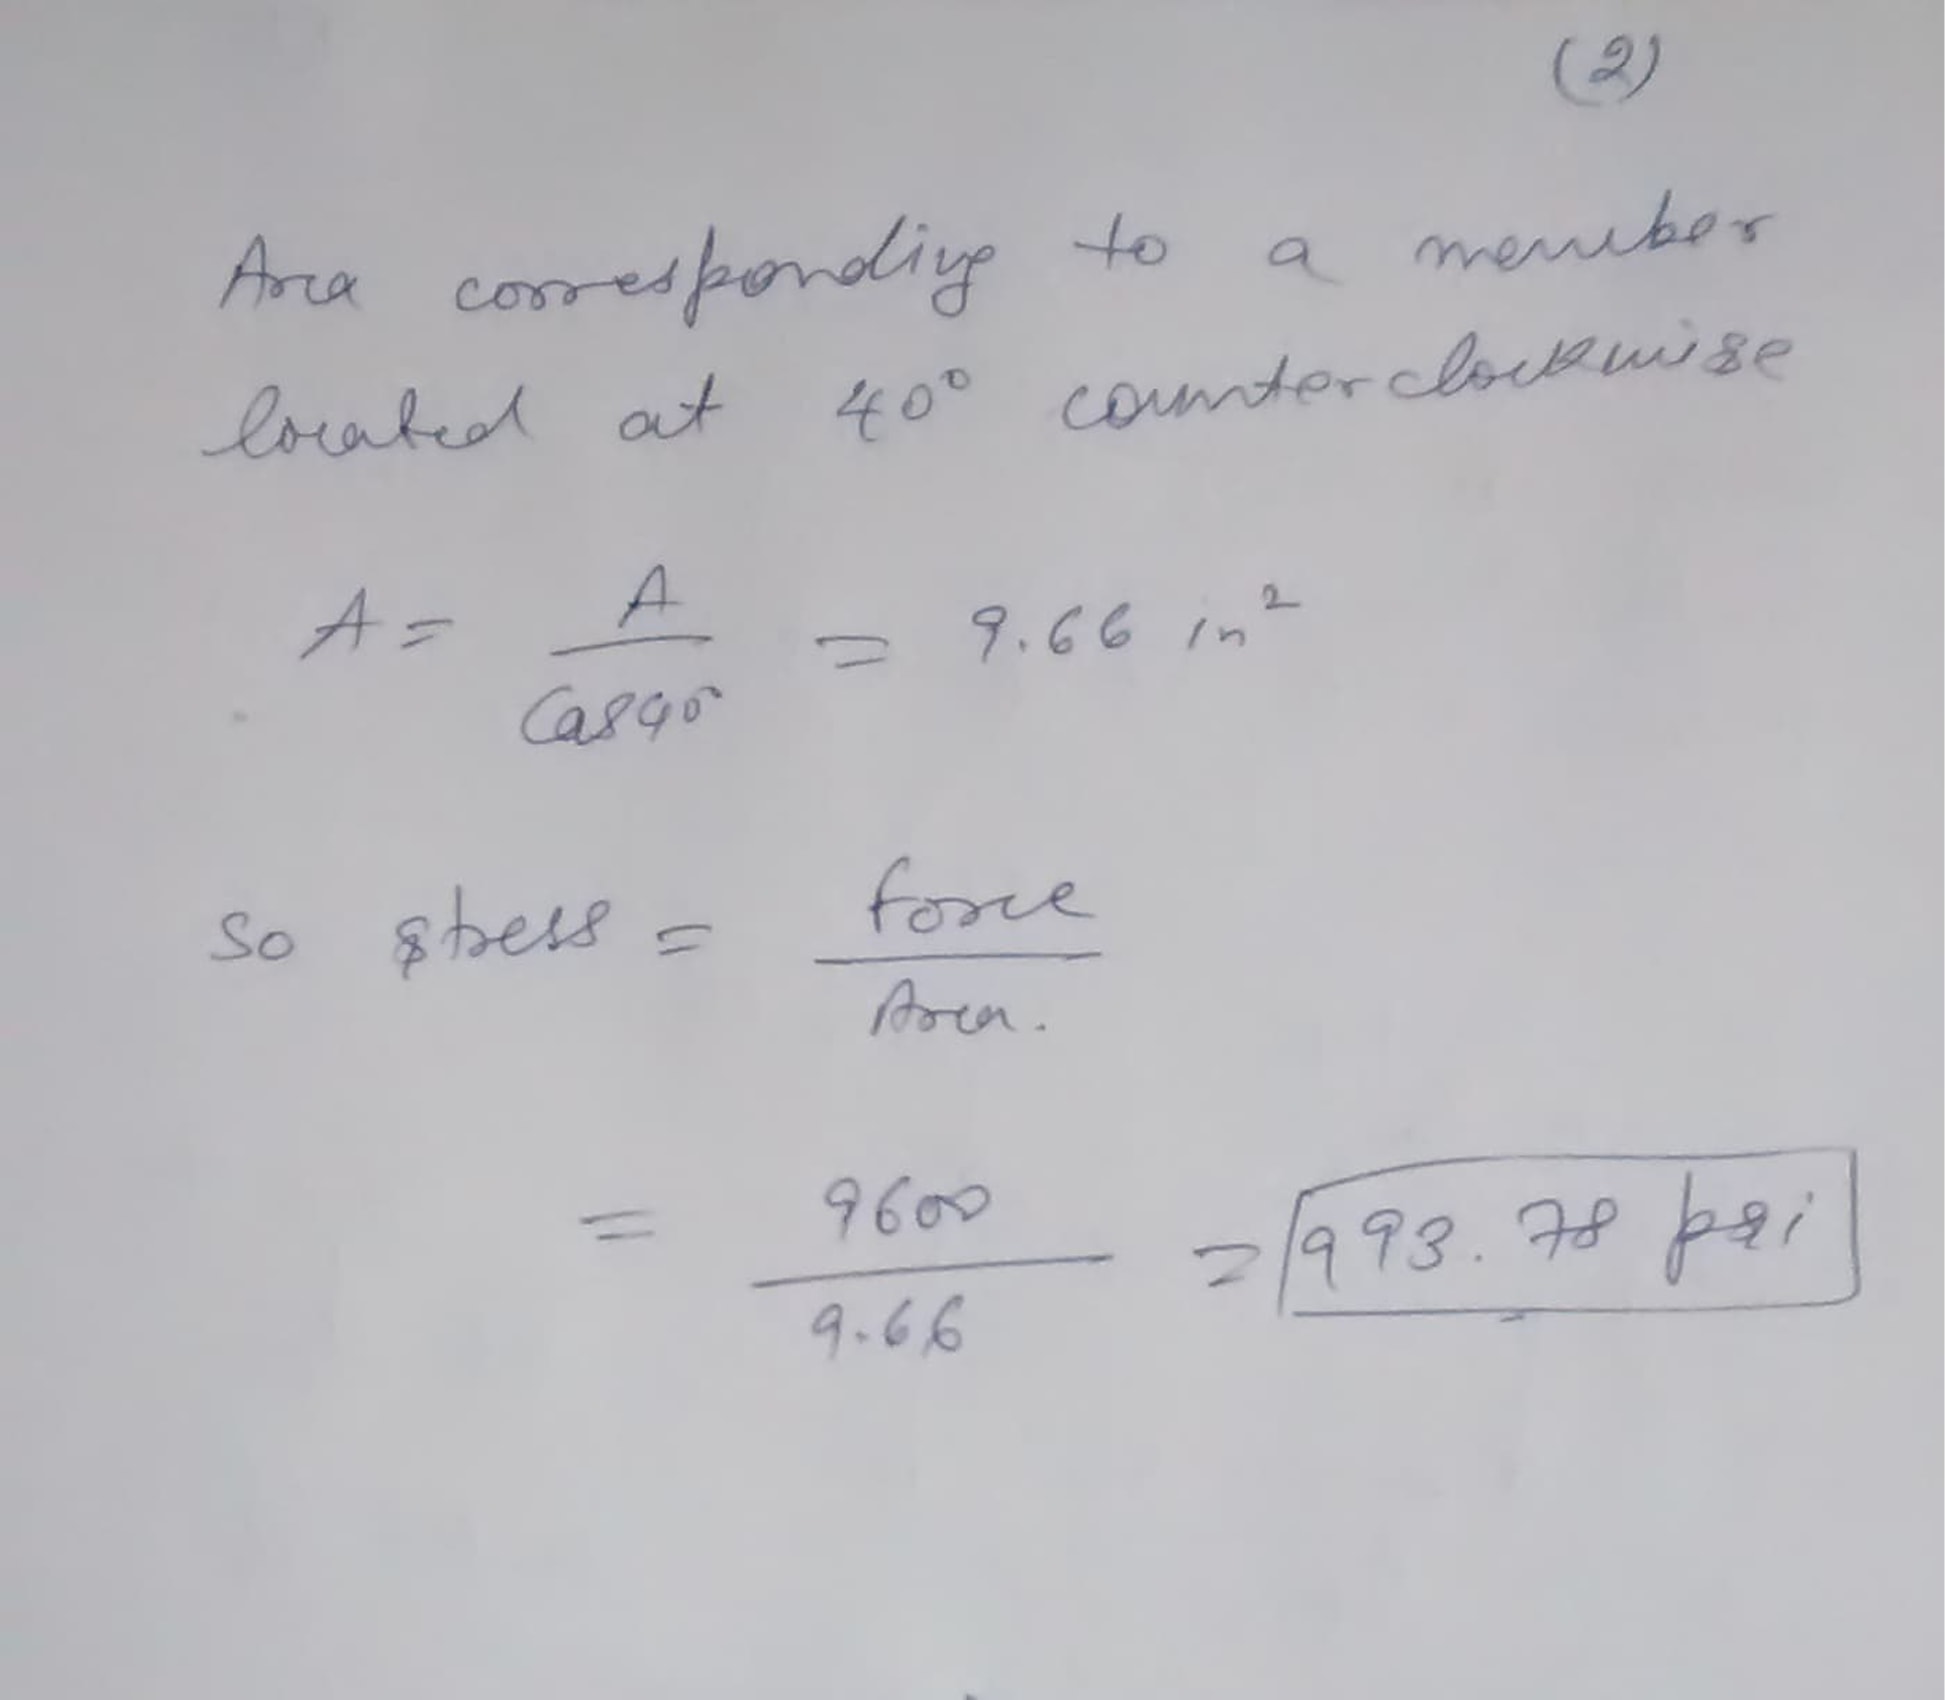 (2)
Area corresponding to a member
located at 40° counterclockwise
A = A / Cos40° = 9.66 in²
So stress = force / Area.
= 9600 / 9.66 = 993.78 psi